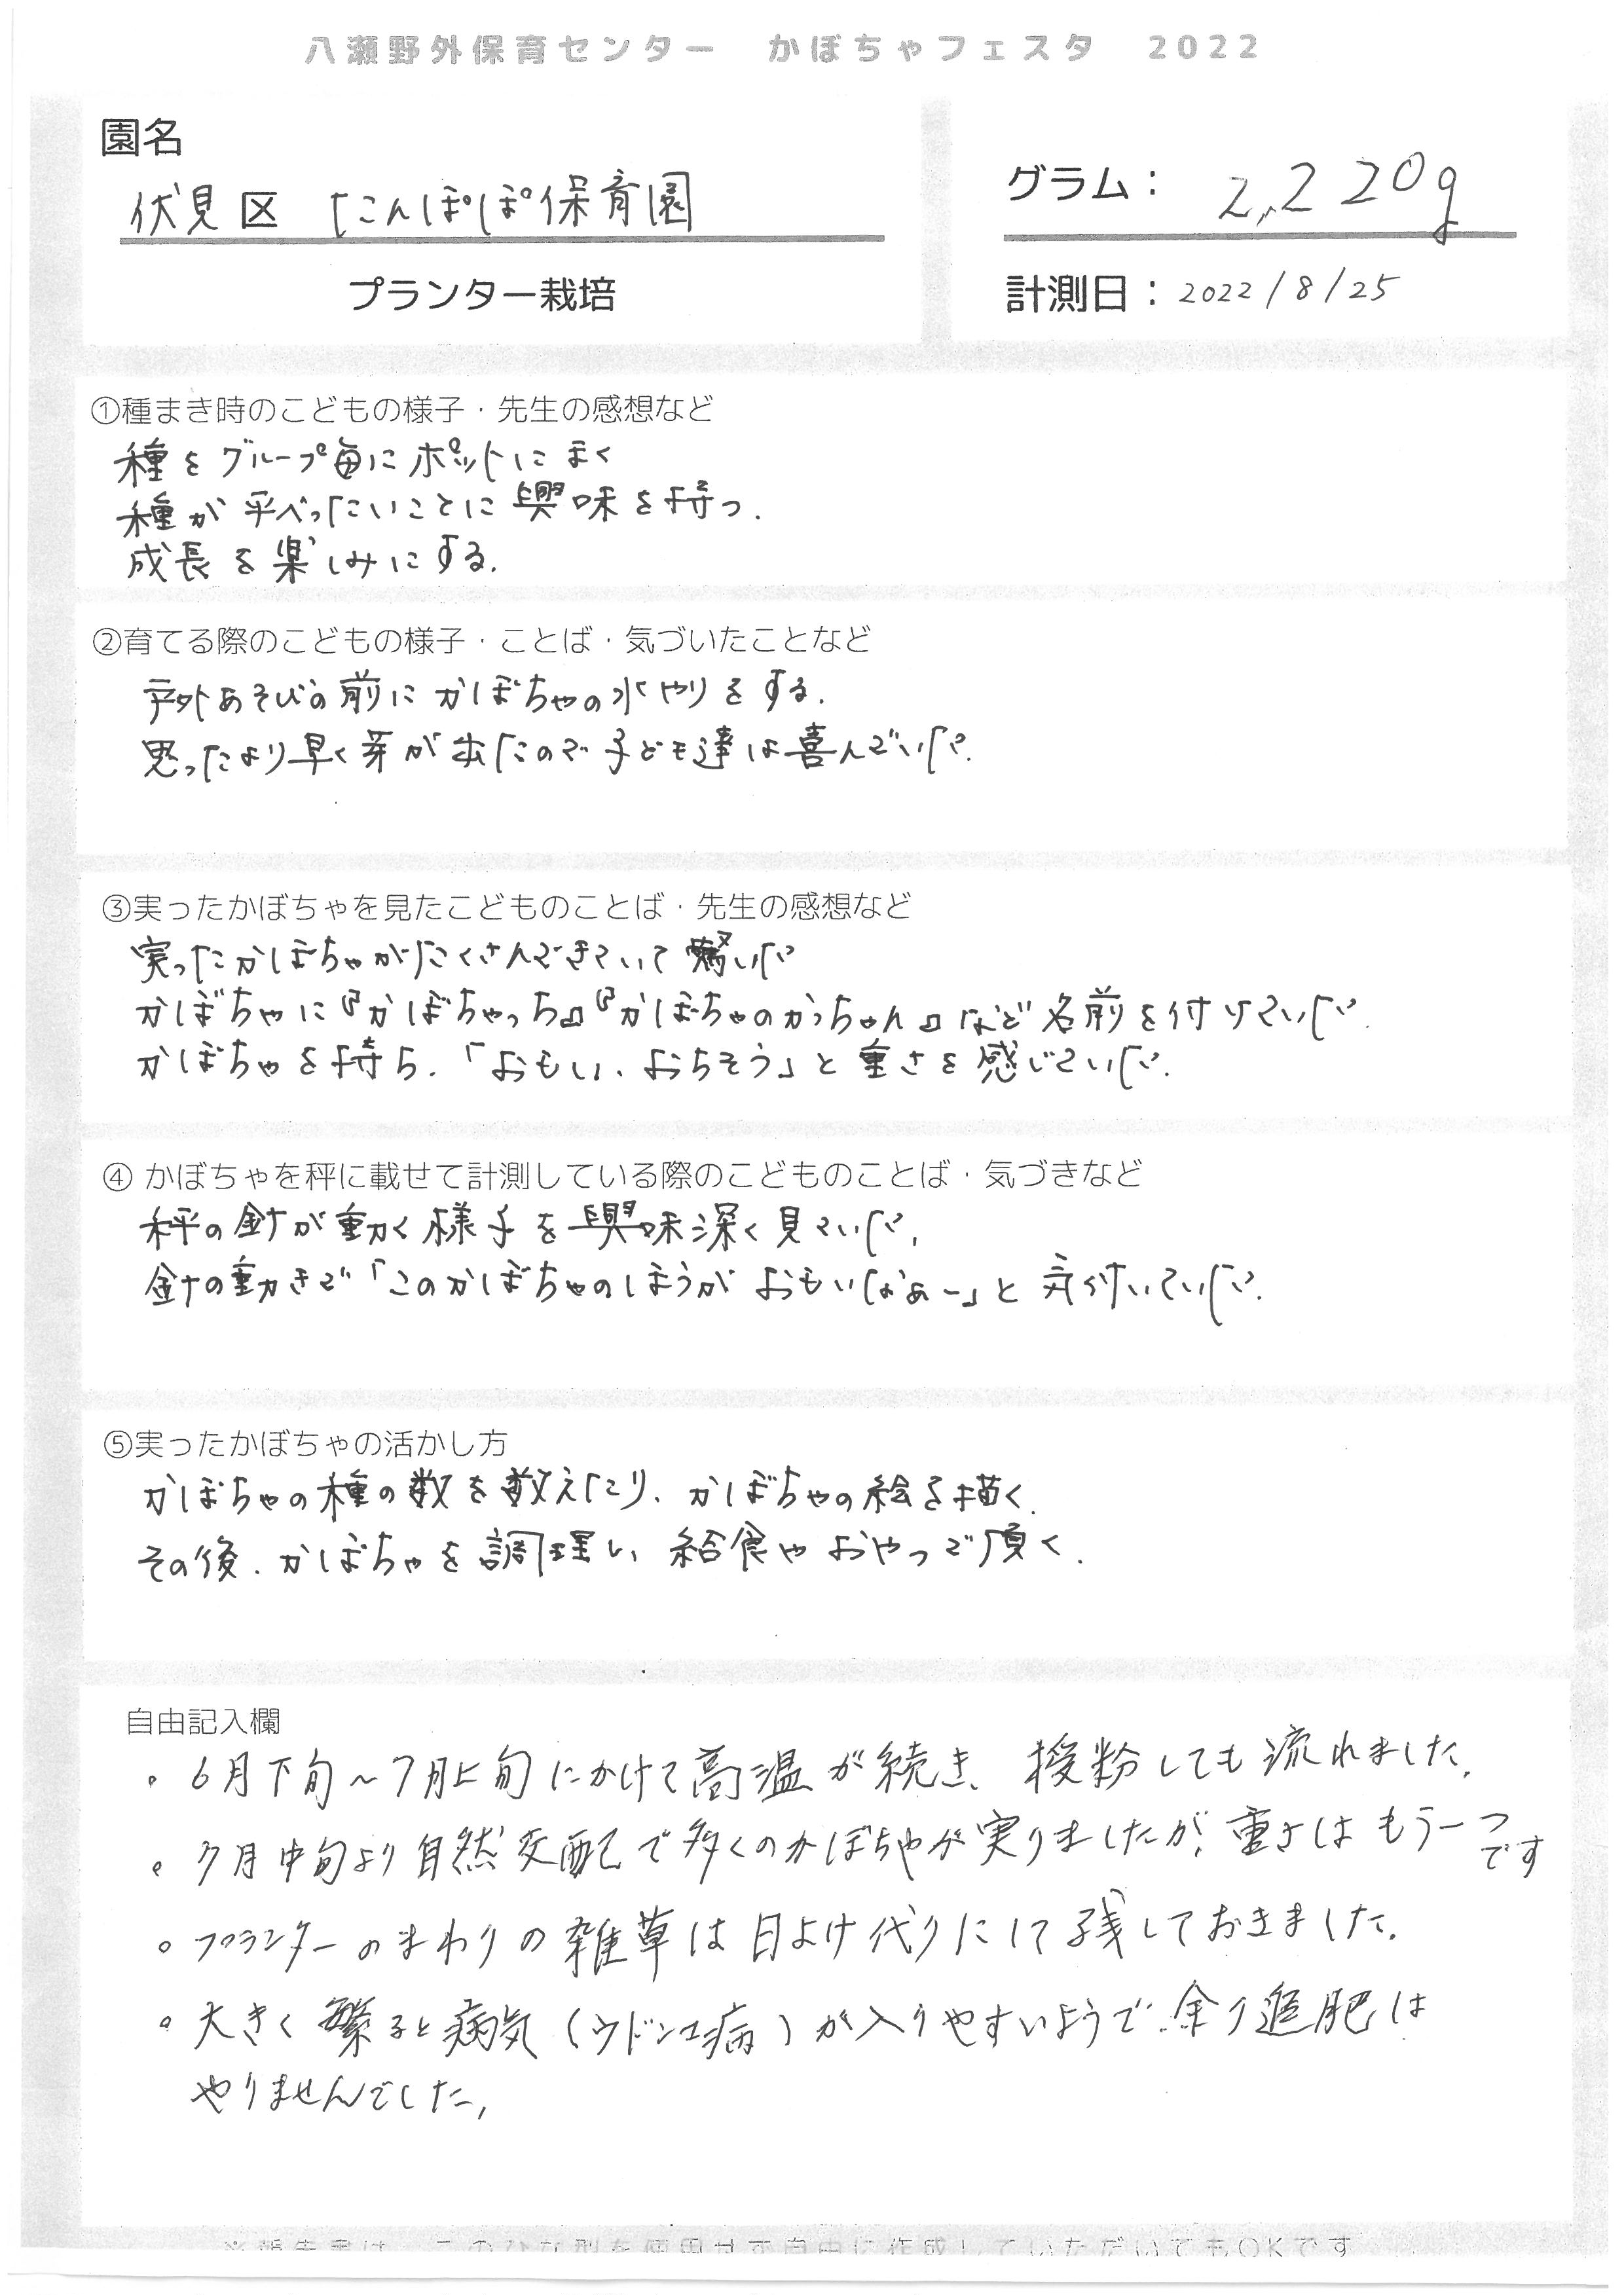 八瀬野外保育センター　かぼちゃフェスタ　2022
園名
伏見区　たんぽぽ保育園
プランター栽培
グラム：　2,220g
計測日：2022/8/25
①種まき時のこどもの様子・先生の感想など
種をグループ毎にポットにまく
種が平べったいことに興味を持つ.
成長を楽しみにする.
②育てる際のこどもの様子・ことば・気づいたことなど
戸外あそびの前にかぼちゃの水やりをする.
思ったより早く芽が出たので子ども達は喜んでいた.
③実ったかぼちゃを見たこどものことば・先生の感想など
実ったかぼちゃがたくさんできていて驚いた
かぼちゃに『かぼちゃっち』『かぼちゃのかっちゃん』など名前を付けていた.
かぼちゃを持ち、「おもい、おちそう」と重さを感じていた.
④ かぼちゃを秤に載せて計測している際のこどものことば・気づきなど
秤の針が動く様子を興味深く見ていた.
針の動きで「このかぼちゃのほうが おもいなぁー」と気付いていた.
⑤実ったかぼちゃの活かし方
かぼちゃの種の数を数えたり、かぼちゃの絵を描く.
その後、かぼちゃを調理し、給食やおやつで頂く.
自由記入欄
。6月下旬～7月上旬にかけて高温が続き、授粉しても流れました。
。7月中旬より自然交配で多くのかぼちゃが実りましたが、重さはもう一つです
。プランターのまわりの雑草は日よけ代りにして残しておきました。
。大きく繁ると病気（ウドンコ病）が入りやすいようで、余り追肥は
やりませんでした。
※報告書は、このひな型を使用せず自由に作成していただいてもOKです